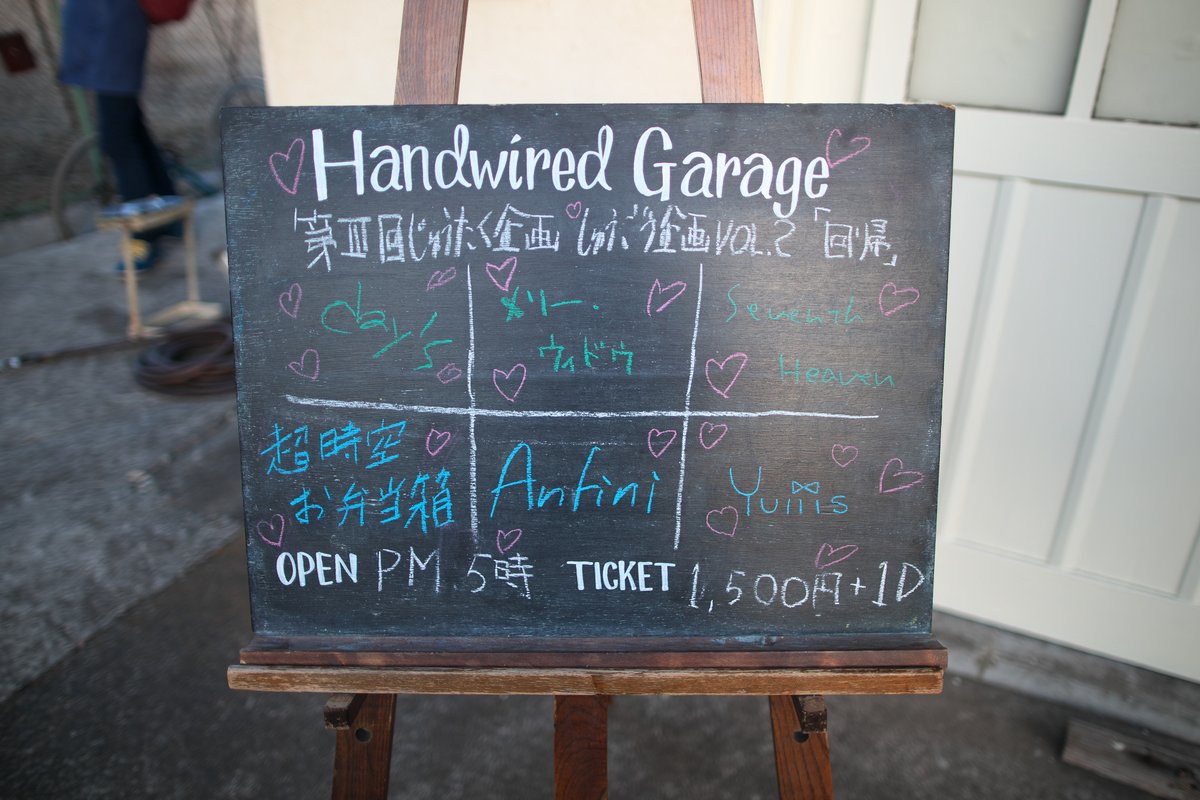 Handwired Garage
「第Ⅲ回じゅうたく企画 しゅどう企画 VOL.2「回帰」
day's
メリー・
ウィドウ
Seventh
Heaven
超時空
お弁当箱
Anfini
Yuiiis
OPEN PM 5時 TICKET 1,500円+1D